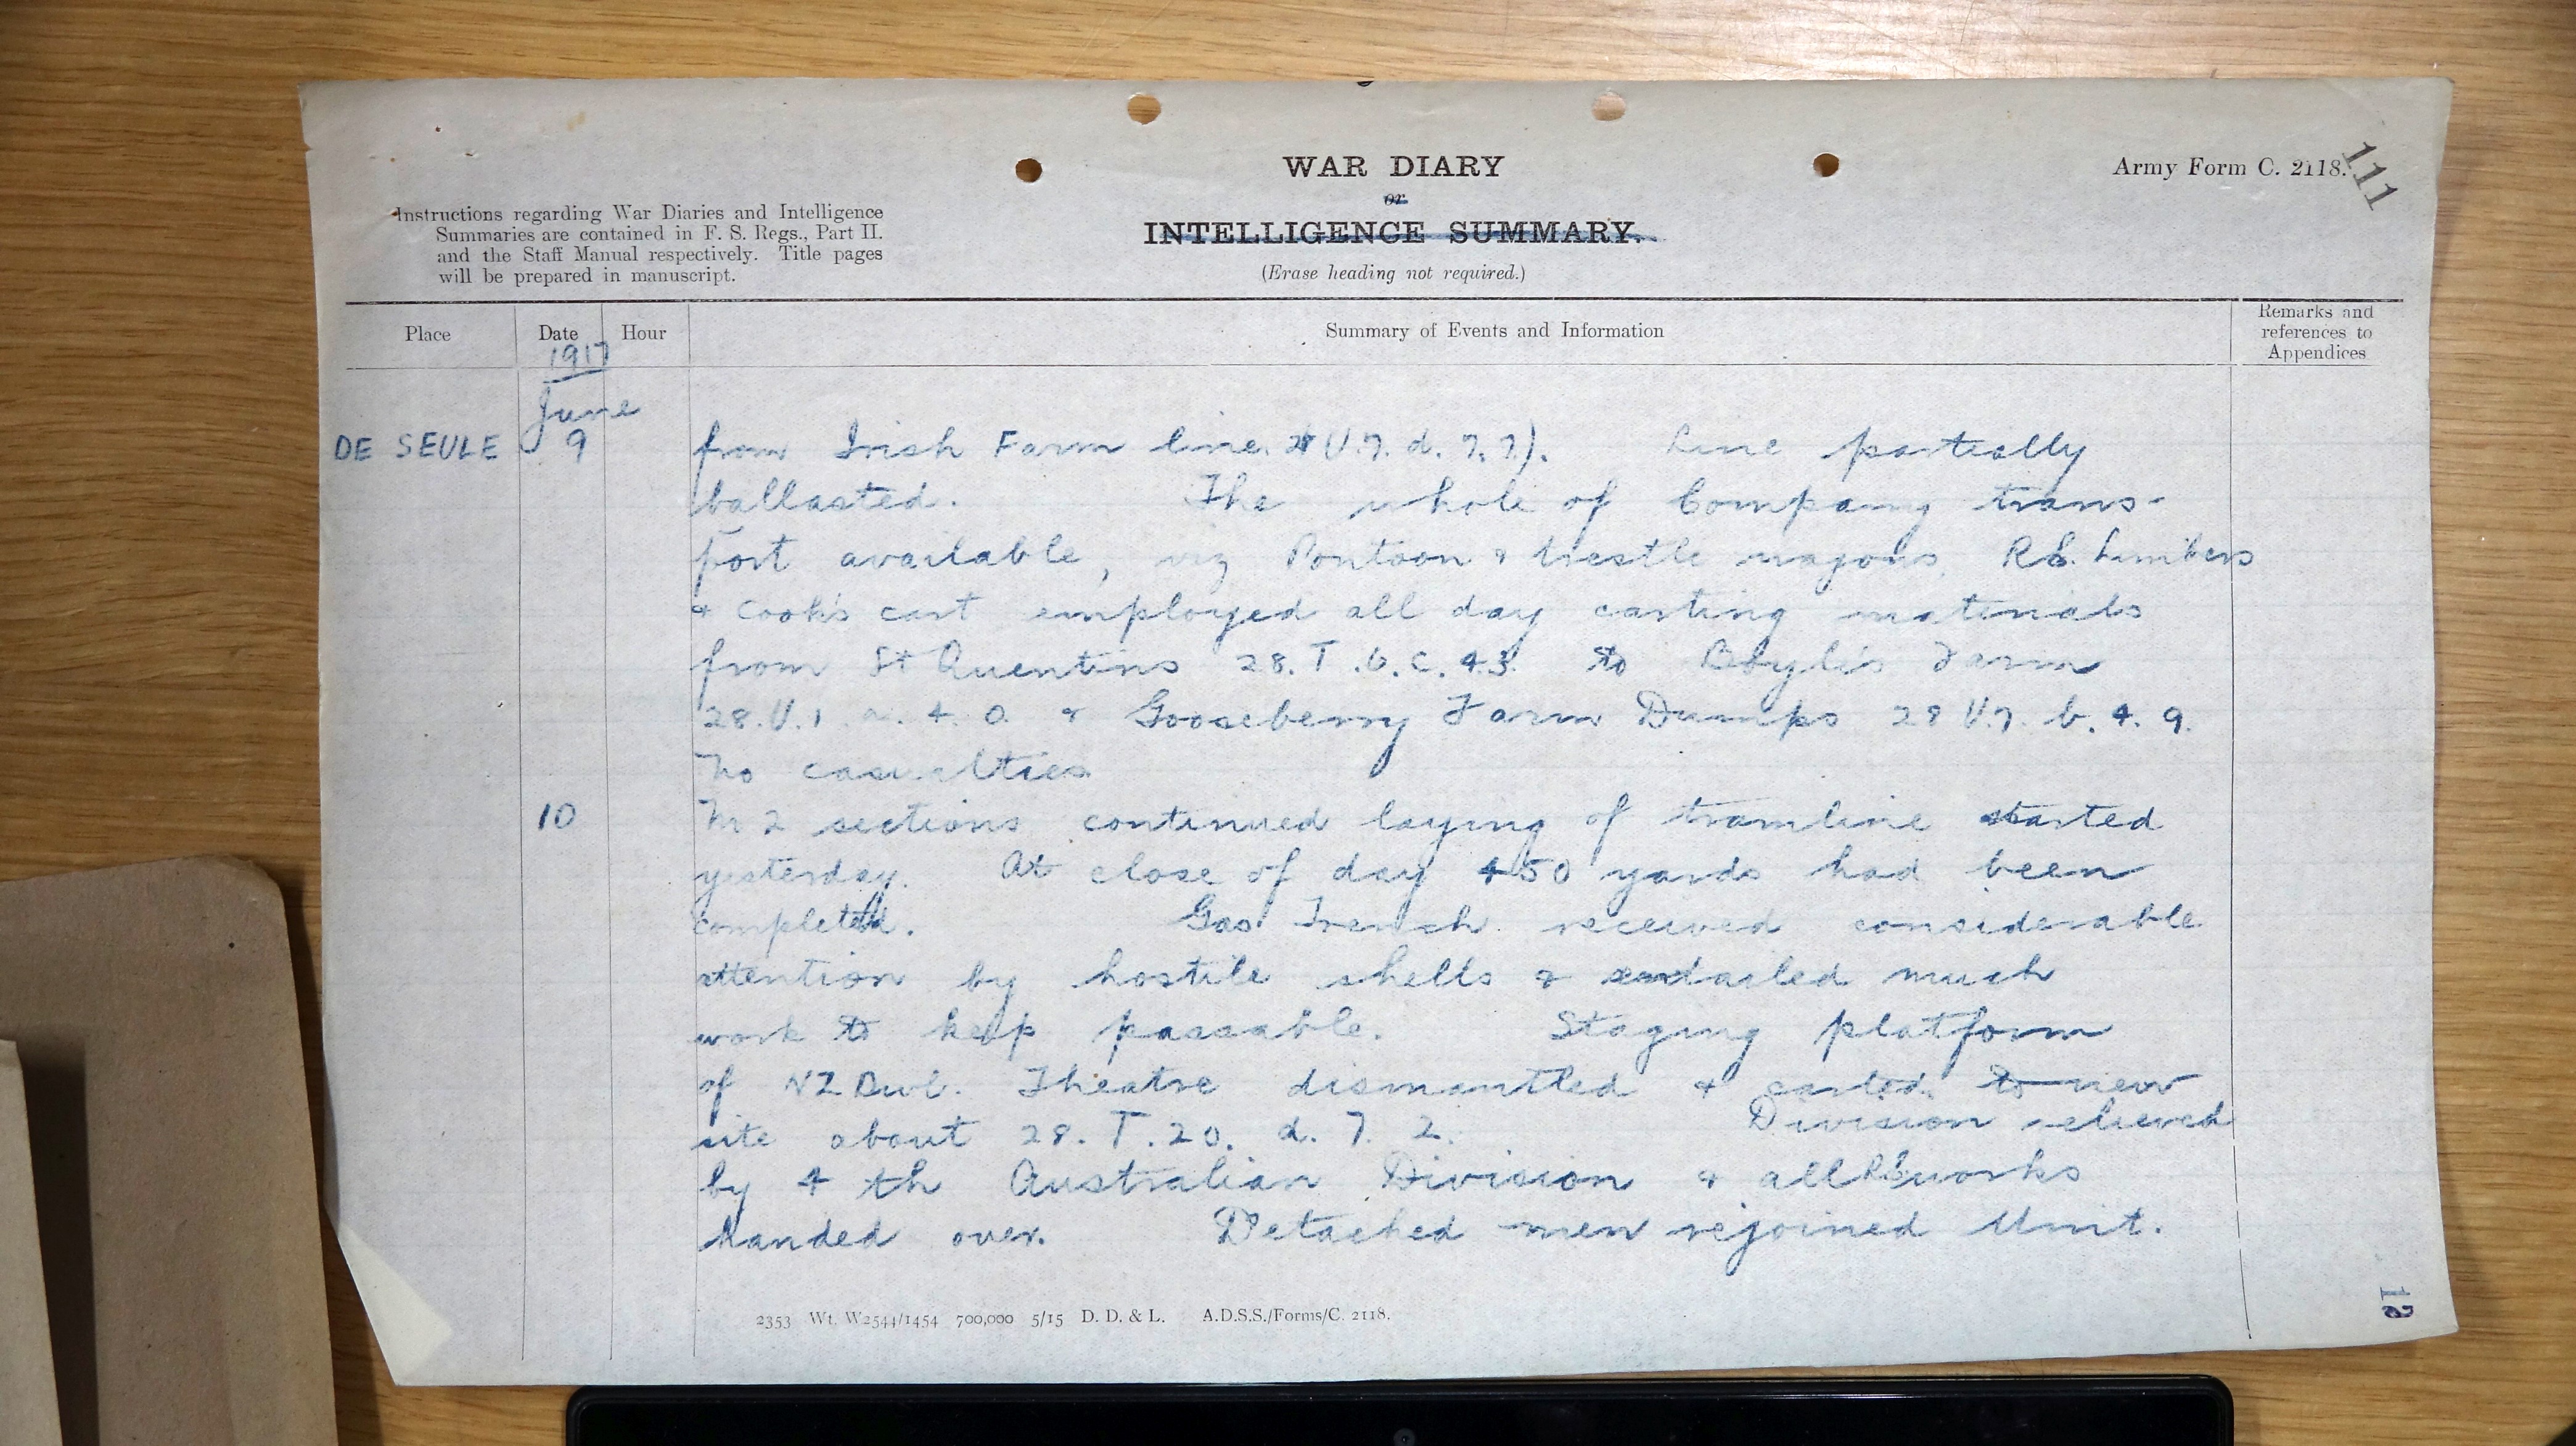 WAR DIARY
or
INTELLIGENCE SUMMARY.
(Erase heading not required.)
Army Form C. 2118.
111
Instructions regarding War Diaries and Intelligence
Summaries are contained in F. S. Regs., Part II.
and the Staff Manual respectively. Title pages
will be prepared in manuscript.
Place Date Hour Summary of Events and Information Remarks and references to Appendices
1917
June
DE SEULE 9 from Irish Farm line. U.7. d. 7. 7). Line partially
ballasted. The whole of Company trans-
port available, viz Pontoon & trestle wagons, R.E. Limbers
& Cook's cart employed all day carting materials
from St Quentins 28. T. 6. C. 4.3. to Farm
28. U. 1. a. 4. 0. & Gooseberry Farm Dumps 28 U.7. b. 4. 9.
No casualties
10 2 sections continued laying of tramline started
yesterday. At close of day 450 yards had been
completed. Gas Trench received considerable
attention by hostile shells & entailed much
work to keep passable. Staging platform
of NZ Divl. Theatre dismantled & carted to new
site about 28. T. 20. d. 7. 2. Division relieved
by 4th Australian Division & all RE works
handed over. Detached men rejoined Unit.
2353 Wt. W2544/1454 700,000 5/15 D. D. & L. A.D.S.S./Forms/C. 2118.
12